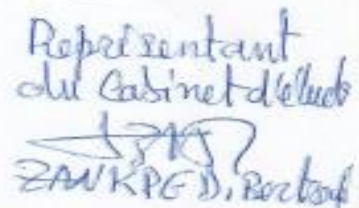 Représentant
du Cabinet d'étude
ZANKPE D.